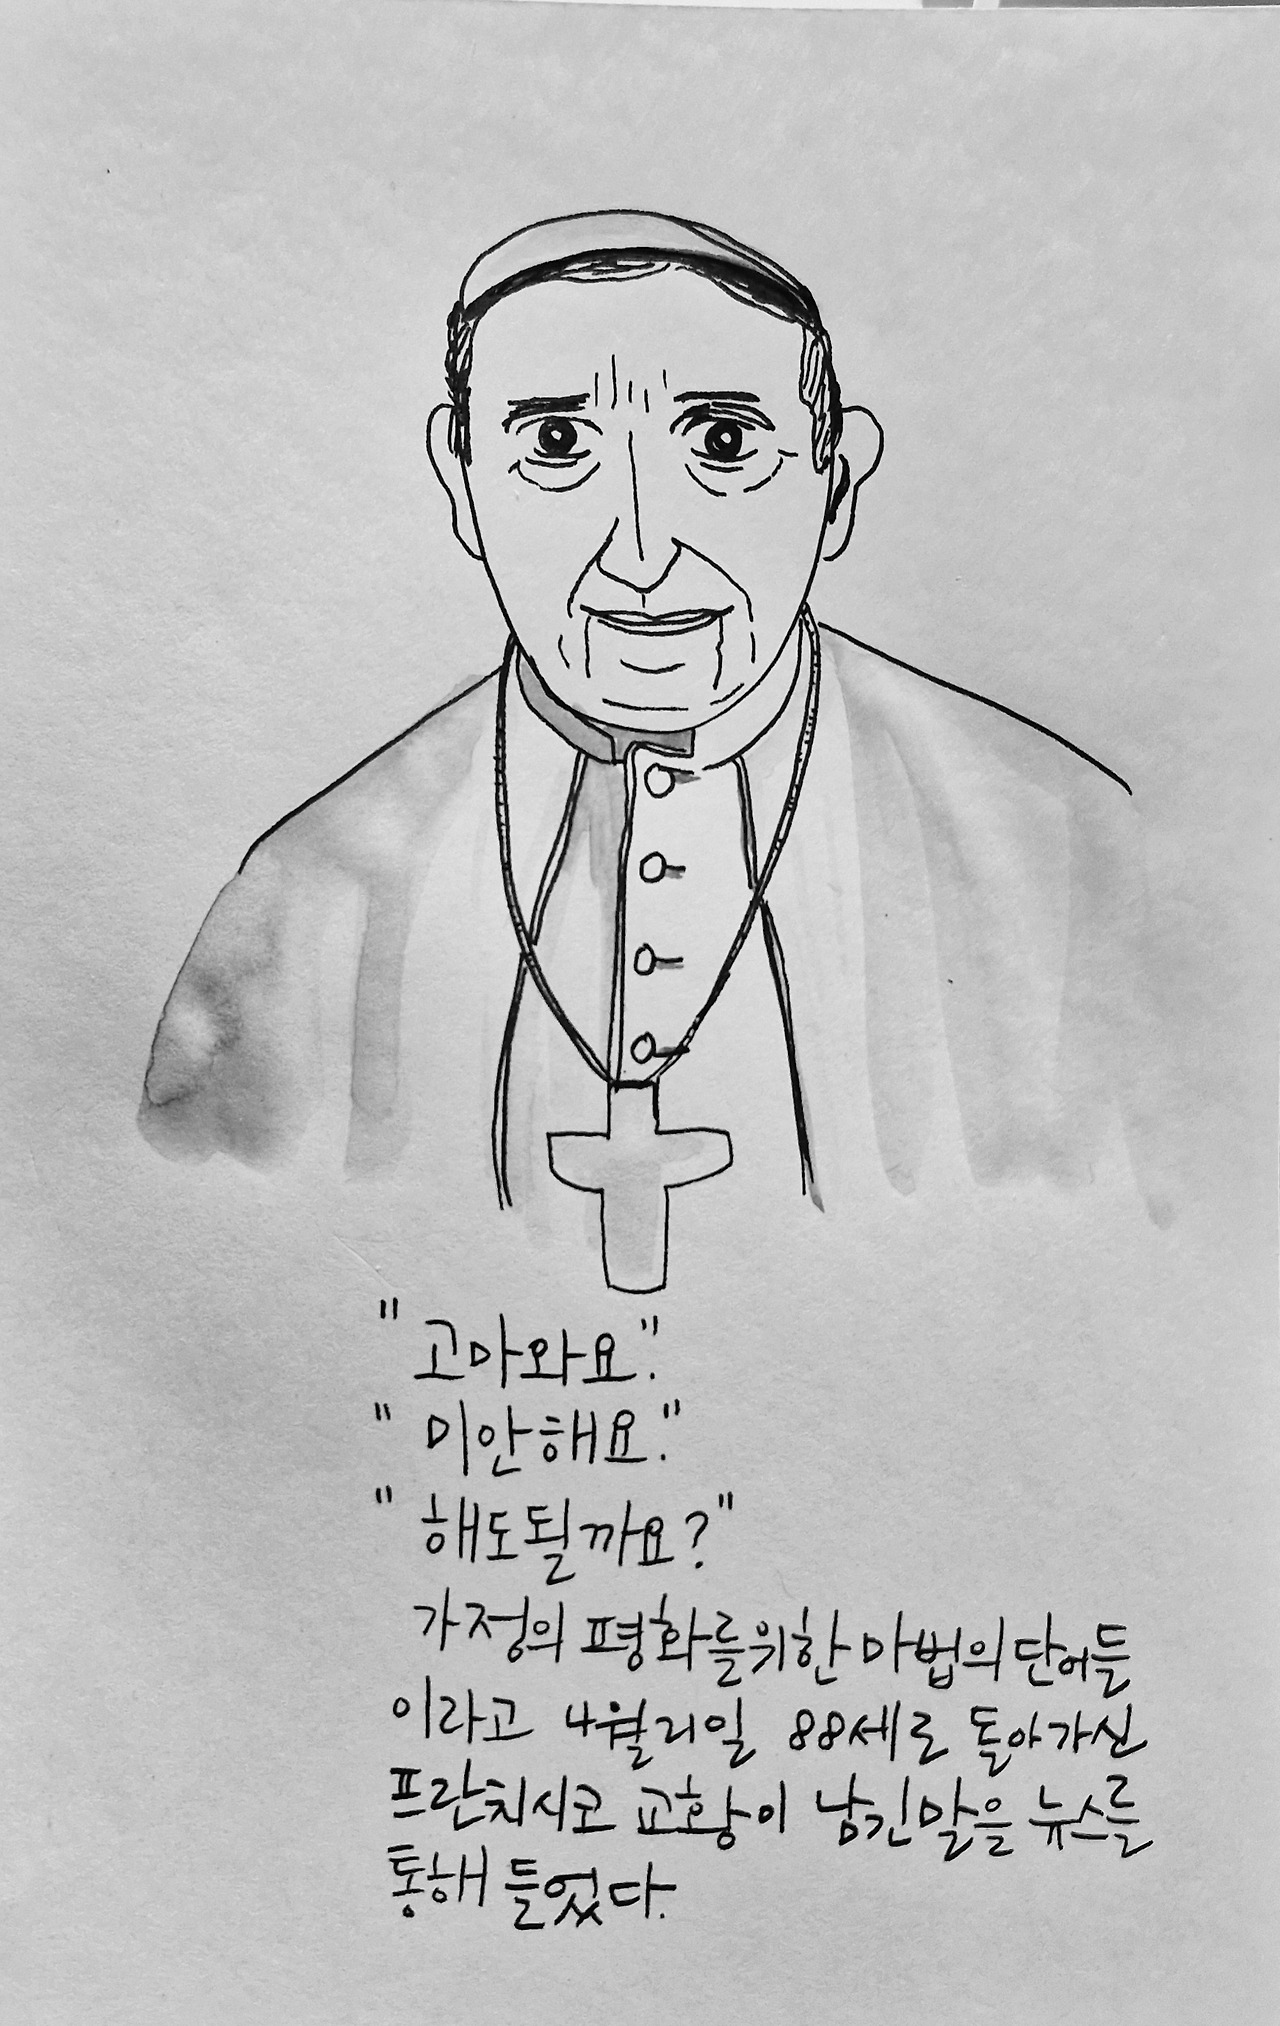 "고마와요."
"미안해요."
"해도될까요?"
가정의 평화를위한 마법의단어들
이라고 4월21일 88세로 돌아가신
프란치시코 교황이 남긴말을 뉴스를
통해 들었다.